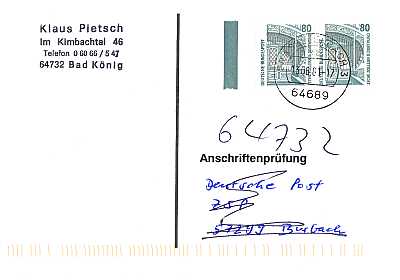 Klaus Pietsch
Im Kimbachtal 46
Telefon 0 60 66 / 5 47
64732 Bad König
80
80
DEUTSCHE BUNDESPOST
64689
64732
Anschriftenprüfung
Deutsche Post
ZSP
57299 Burbach